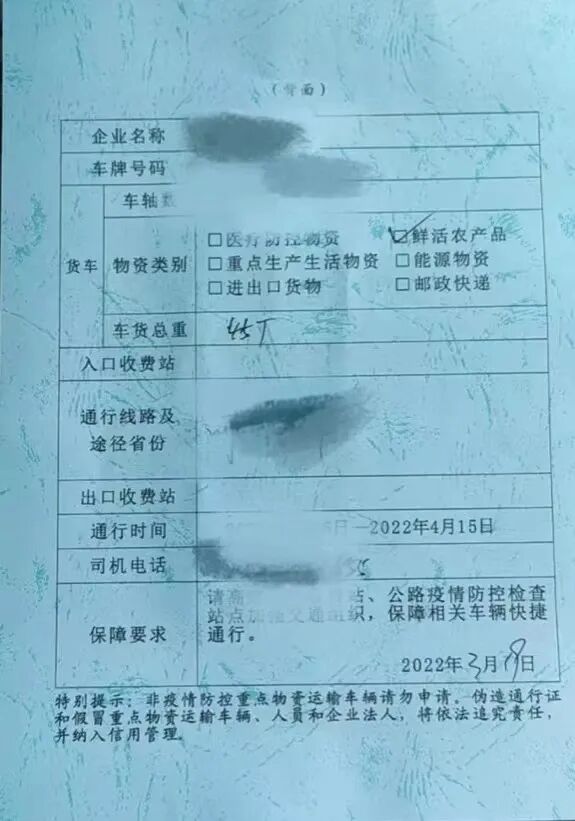 （背面）
企业名称
车牌号码
货车
车轴数
物资类别
□医疗防控物资 ☑鲜活农产品
□重点生产生活物资 □能源物资
□进出口货物 □邮政快递
车货总重 45T
入口收费站
通行线路及
途径省份
出口收费站
通行时间 —2022年4月15日
司机电话
保障要求
请高 站、公路疫情防控检查
站点加强交通组织，保障相关车辆快捷
通行。
2022年3月 日
特别提示：非疫情防控重点物资运输车辆请勿申请。伪造通行证
和假冒重点物资运输车辆、人员和企业法人，将依法追究责任，
并纳入信用管理。